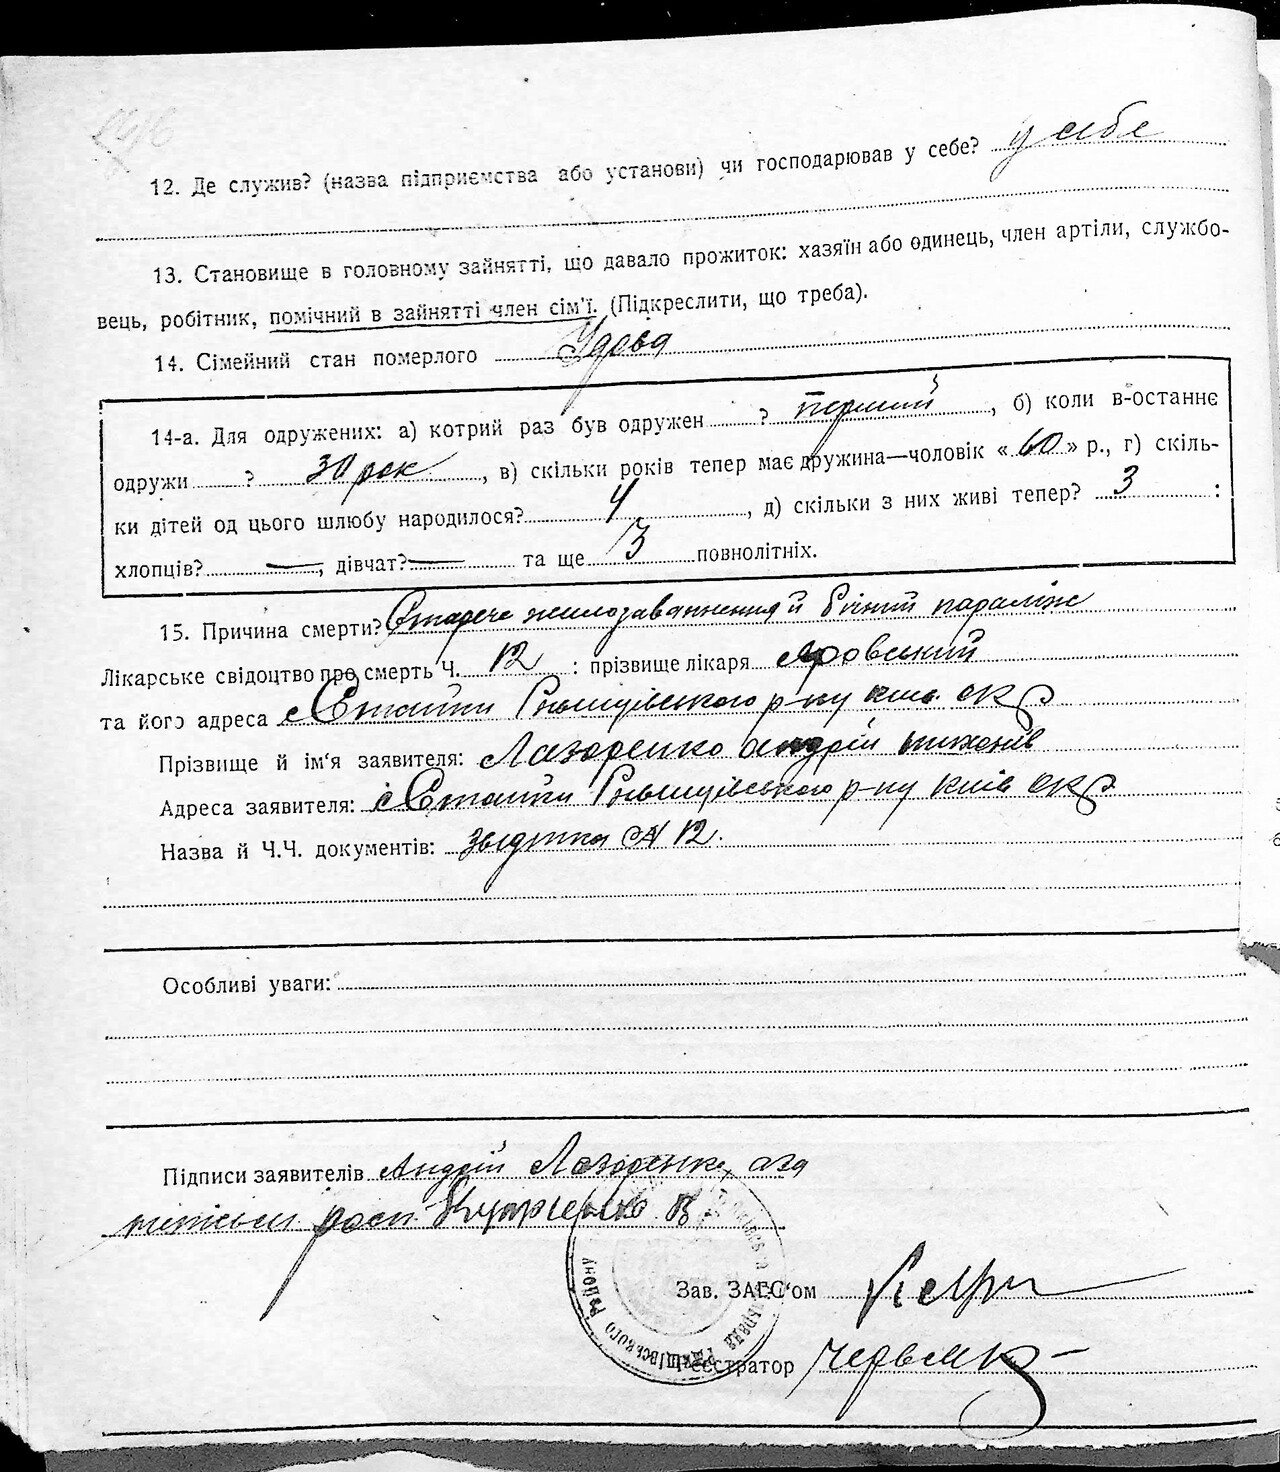 12. Де служив? (назва підприємства або установи) чи господарював у себе? у себе
13. Становище в головному зайнятті, що давало прожиток: хазяїн або одинець, член артіли, службо-
вець, робітник, помічний в зайнятті член сім'ї. (Підкреслити, що треба).
14. Сімейний стан померлого Удова
14-а. Для одружених: а) котрий раз був одружен ? перший, б) коли в-останнє
одружи ? 30 рок, в) скільки років тепер має дружина—чоловік «60» р., г) скіль-
ки дітей од цього шлюбу народилося? 4, д) скільки з них живі тепер? 3 :
хлопців? —, дівчат? — та ще 3 повнолітніх.
15. Причина смерти? Старече й параліж
Лікарське свідоцтво про смерть Ч. 12 : прізвище лікаря Яровський
та його адреса с Стайки р-ну Київ. окр
Прізвище й ім'я заявителя: Лазоренко Андрій
Адреса заявителя: с Стайки р-ну Київ окр
Назва й Ч.Ч. документів: № 12.
Особливі уваги:
Підписи заявителів Андрій Лазоренко, а за
росп.
Зав. ЗАГС'ом
Реєстратор
району